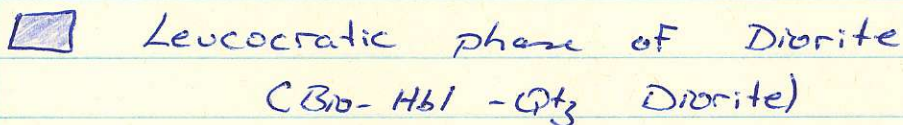 Leucocratic phase of Diorite
(Bio-Hbl-Qtz Diorite)